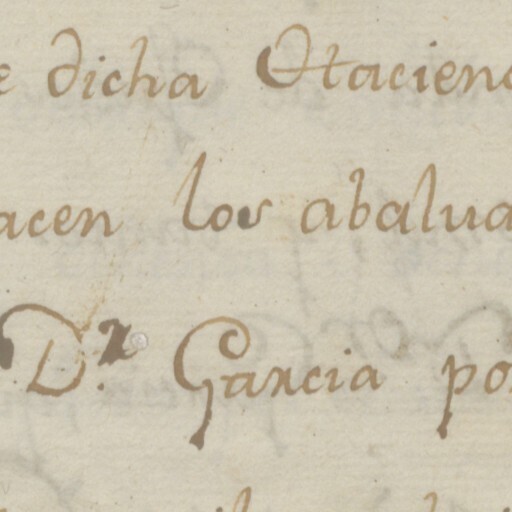 e dicha Haciend
acen los abalua
D.r Garcia por